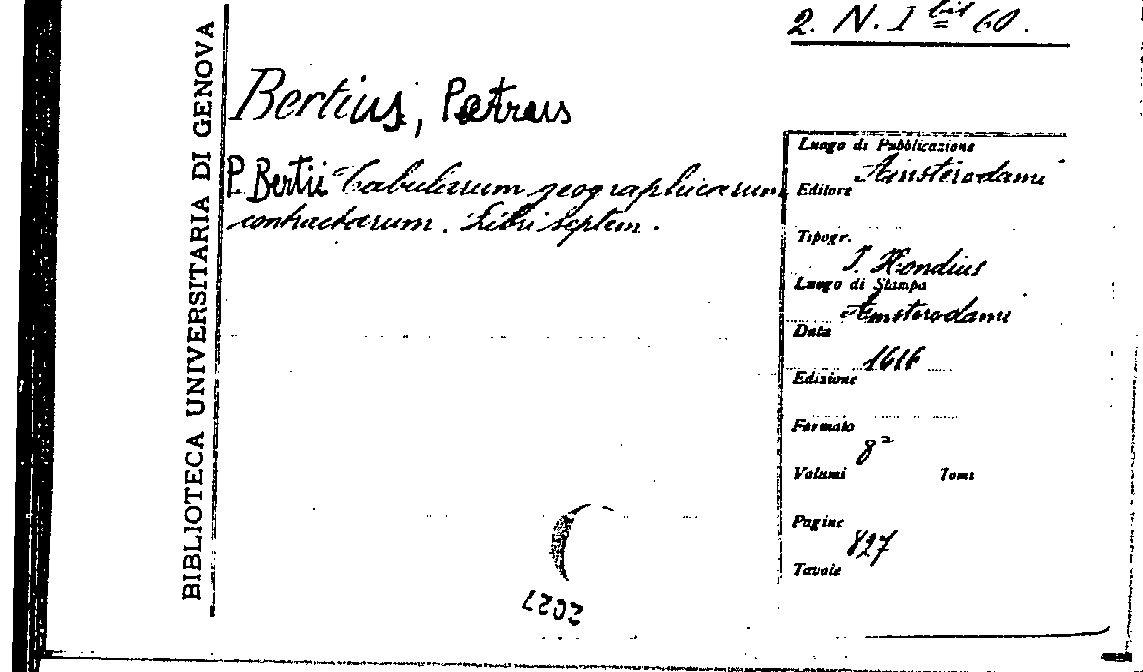 2. N. I bis 60.
BIBLIOTECA UNIVERSITARIA DI GENOVA
Bertius, Petrus
P. Bertii Tabularum geographicarum
contractarum. Libri septem.
Luogo di Pubblicazione
Amsterodami
Editore
Tipogr.
J. Hondius
Luogo di Stampa
Amsterodami
Data
1616
Edizione
Formato
8°
Volumi Tomi
Pagine
827
Tavole
2027